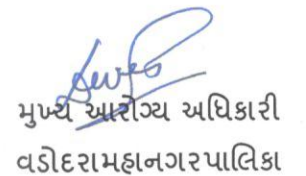 મુખ્ય આરોગ્ય અધિકારી
વડોદરામહાનગરપાલિકા